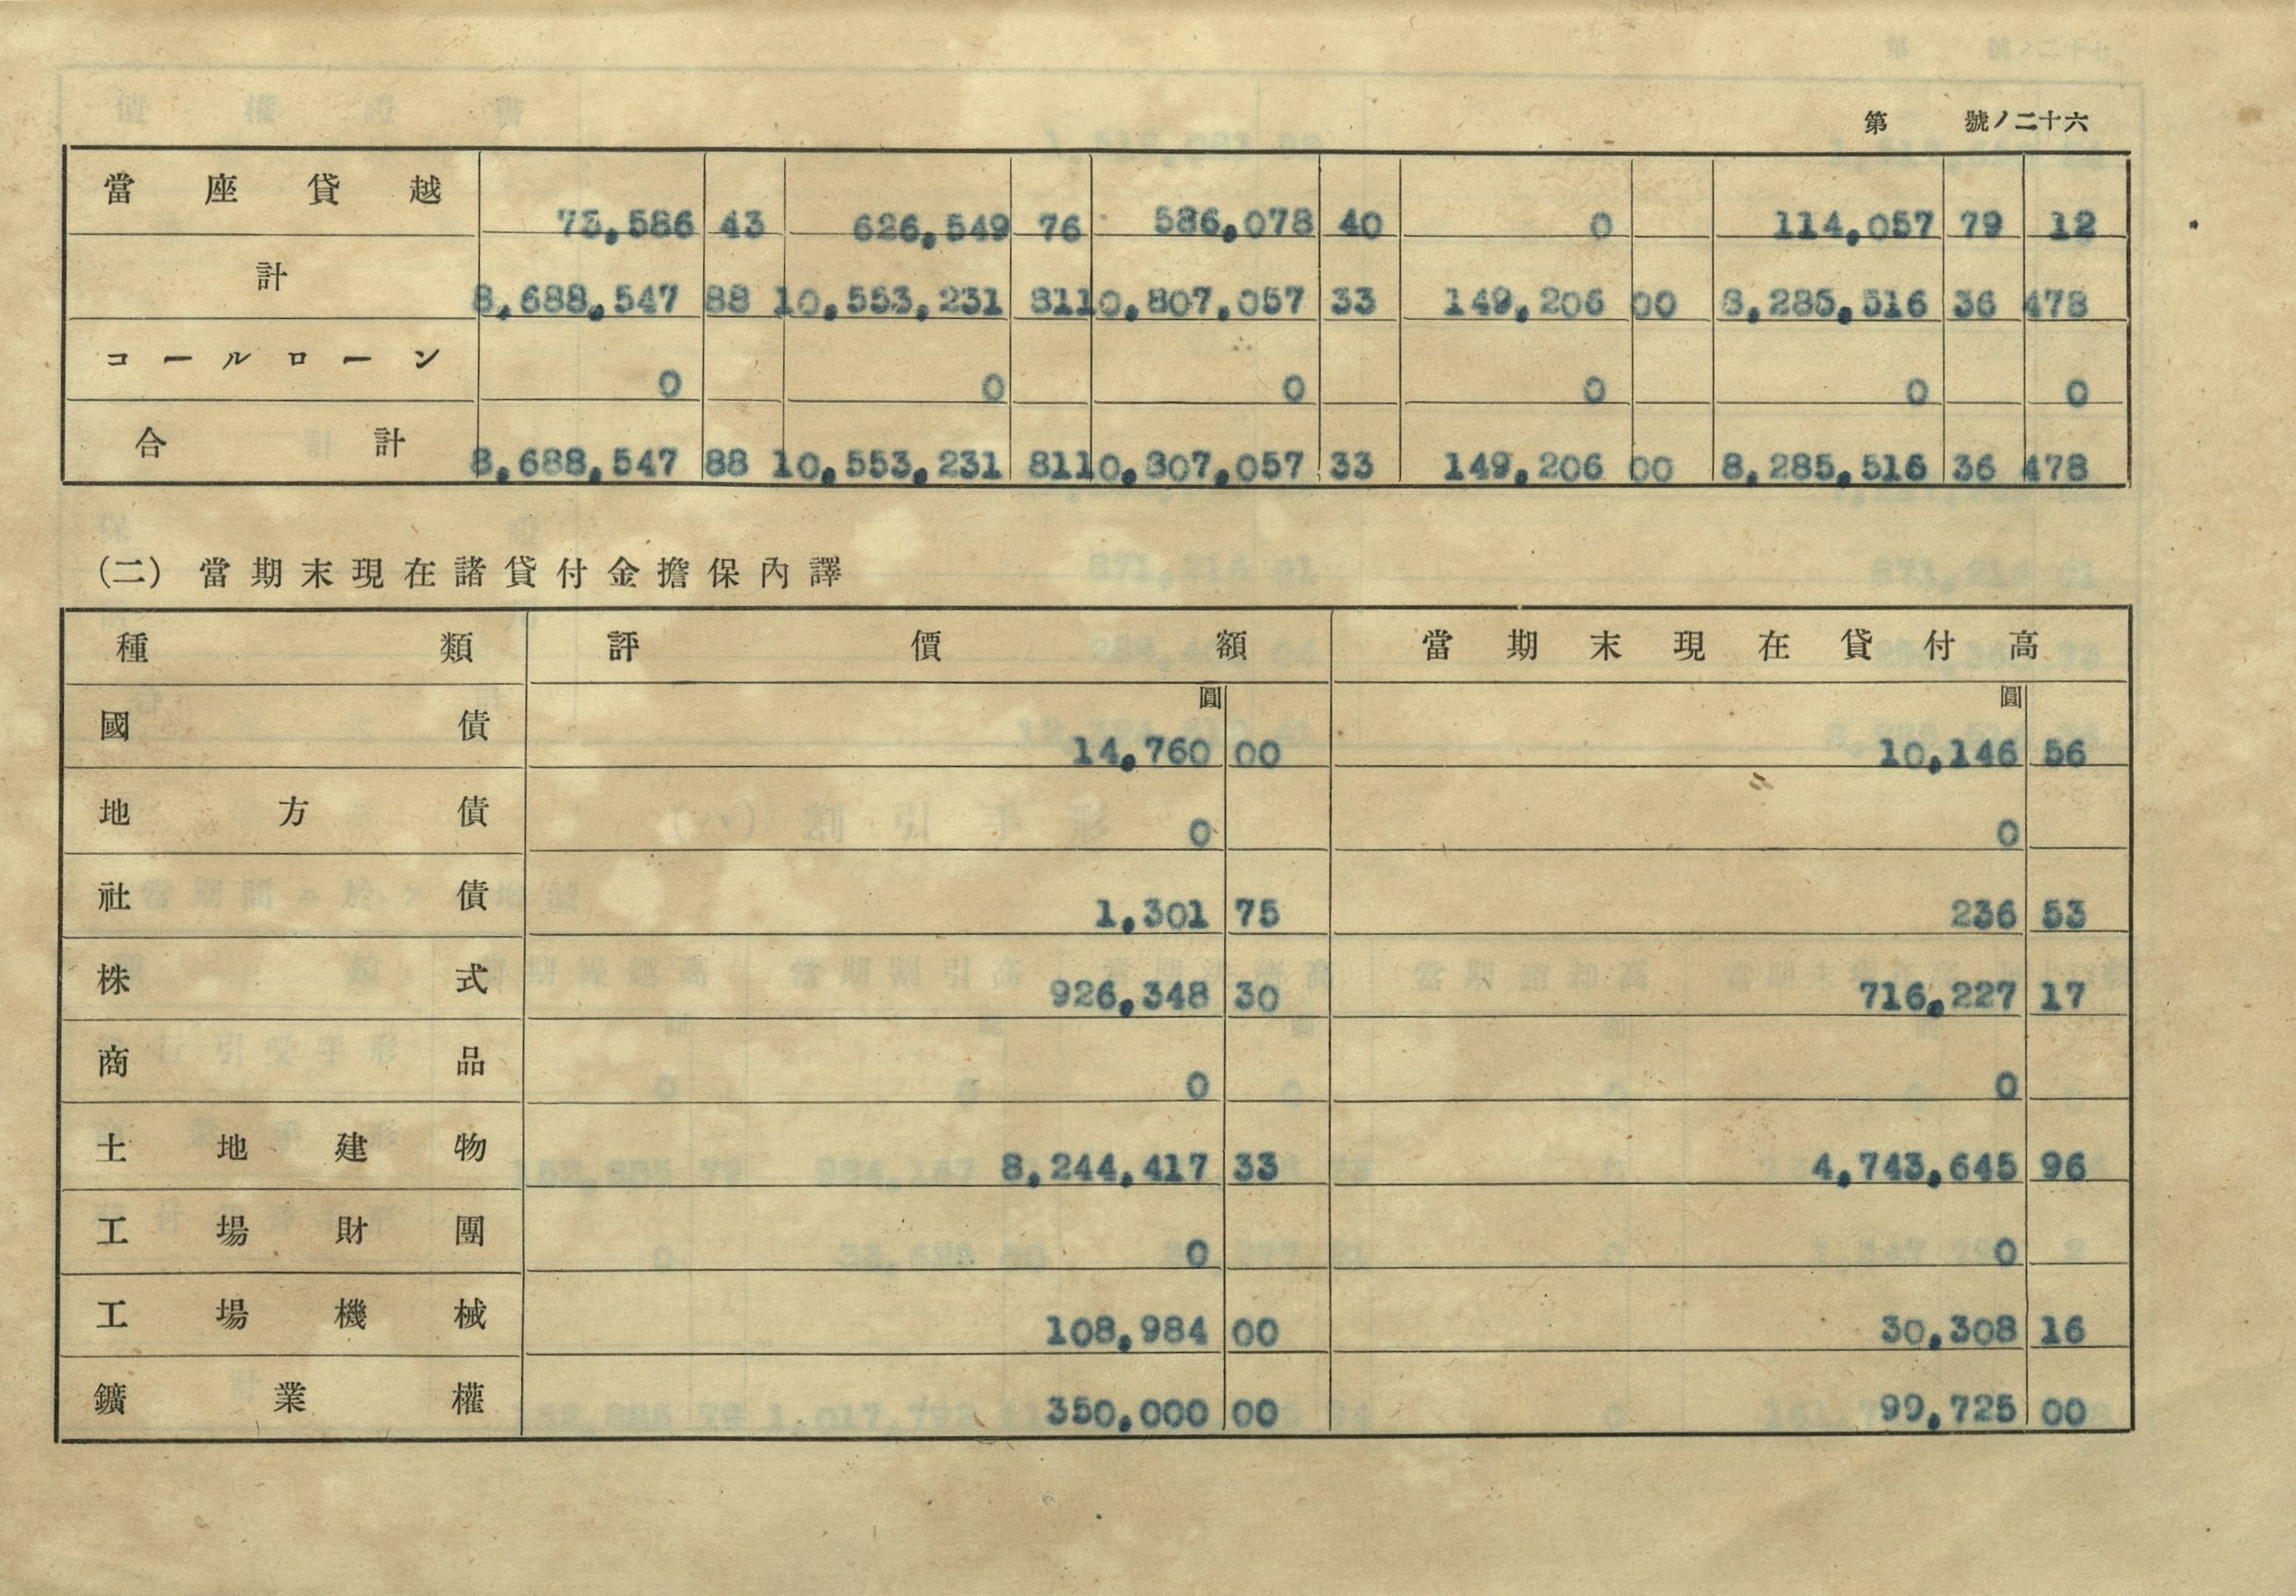 第 號ノ二十六
當座貸越 73,586 43 626,549 76 586,078 40 0 114,057 79 12
計 8,688,547 88 10,553,231 81 10,807,057 33 149,206 00 8,285,516 36 478
コールローン 0 0 0 0 0 0
合計 8,688,547 88 10,553,231 81 10,807,057 33 149,206 00 8,285,516 36 478
(二)當期末現在諸貸付金擔保內譯
種類 評價額 當期末現在貸付高
圓 圓
國債 14,760 00 10,146 56
地方債 0 0
社債 1,301 75 236 53
株式 926,348 30 716,227 17
商品 0 0
土地建物 8,244,417 33 4,743,645 96
工場財團 0 0
工場機械 108,984 00 30,308 16
鑛業權 350,000 00 99,725 00